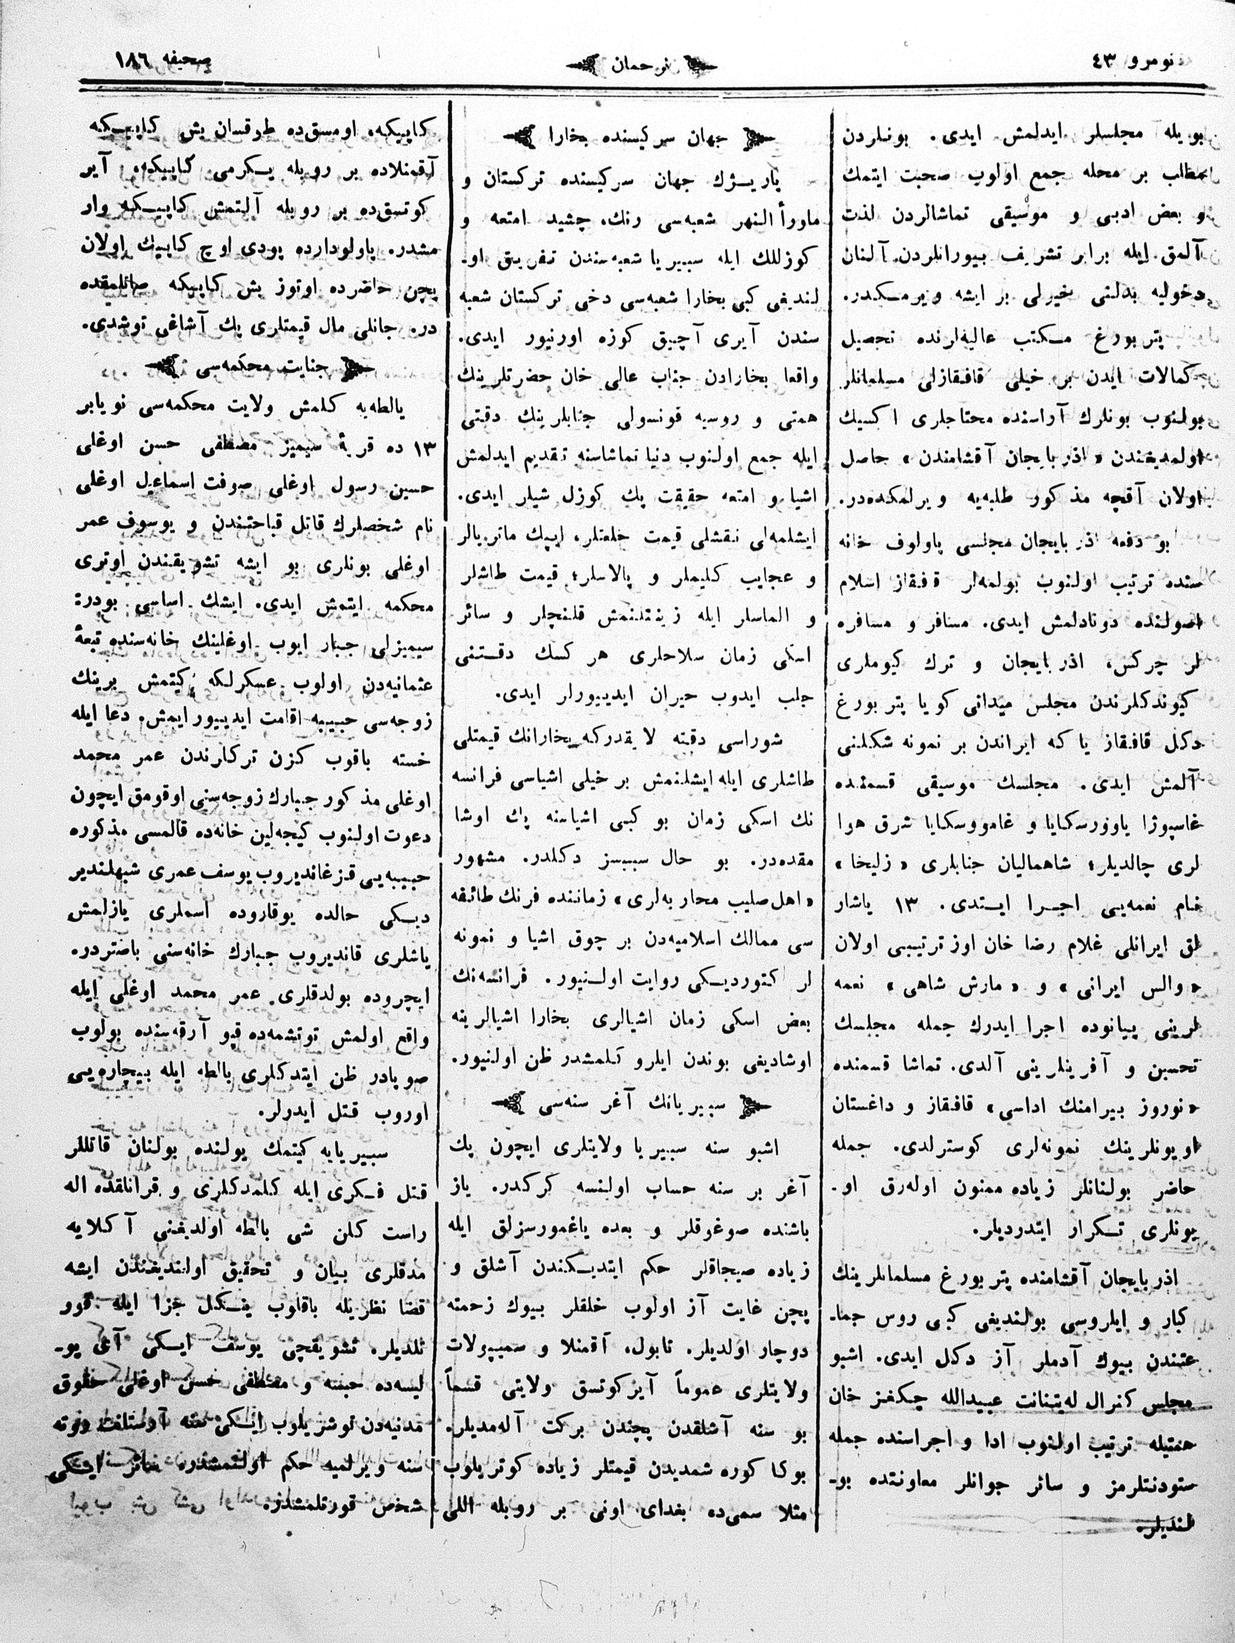 نومرو ٤٣
ترجمان
صحیفه ١٨٦
بویله مجلسلر ایدلمش ایدی. بونلردن
مطلب بر محله جمع اولوب صحبت ایتمك
و بعض ادبی و موسیقی تماشالردن لذت
آلمق ایله برابر تشریف بیورانلردن آلنان
دخولیه بدلتی خیرلی بر ایشه ویرمكدر.
پتربورغ مكتب عالیه‌لرنده تحصیل
كمالات ایدن بر خیلی قافقازلی مسلمانلر
بولنوب بونلرك آراسنده محتاجلری اكسیك
اولمدیغندن «اذربایجان آقشامندن» حاصل
اولان آقچه مذكور طلبه‌یه ویرلمكده‌در.
بو دفعه اذربایجان مجلسی پاولوف خانه
سنده ترتیب اولنوب بولمه‌لر قفقاز اسلام
اصولنده دونادلمش ایدی. مسافر و مسافره
لر چركس، اذربایجان و ترك كیوملری
كیوندكلرندن مجلس میدانی كویا پتربورغ
دكل قافقاز یا كه ایراندن بر نمونه شكلنی
آلمش ایدی. مجلسك موسیقی قسمنده
غاسپوژا یاوورسكایا و غامووسكایا شرق هوا
لری چالدیلر؛ شاهمالیان جنابلری «زلیخا»
نام نغمه‌یی اجرا ایتدی. ١٣ یاشار
لق ایرانلی غلام رضا خان اوز ترتیبی اولان
«والس ایرانی» و «مارش شاهی» نغمه
لرینی پیانوده اجرا ایدرك جمله مجلسك
تحسین و آفرینلرینی آلدی. تماشا قسمنده
«نوروز بیرامنك اداسی» قافقاز و داغستان
اویونلرینك نمونه‌لری كوسترلدی. جمله
حاضر بولنانلر زیاده ممنون اوله‌رق او-
یونلری تكرار ایتدردیلر.
اذربایجان آقشامنده پتربورغ مسلمانلرینك
كبار و ایلروسی بولندیغی كبی روس جما-
عتندن بیوك آدملر آز دكل ایدی. اشبو
مجلس كنرال له‌یتنانت عبیدالله چنگیز خان
همتیله ترتیب اولنوب ادا و اجراسنده جمله
ستودنتلرمز و سائر جوانلر معاونتده بو-
لندیلر.
جهان سركیسنده بخارا
پاریژك جهان سركیسنده تركستان و
ماورأ النهر شعبه‌سی رنك، چشید امتعه و
كوزللك ایله سیبیریا شعبه‌سندن تفریق او-
لندیغی كبی بخارا شعبه‌سی دخی تركستان شعبه
سندن آیری آچیق كوزه اورنیور ایدی.
واقعا بخارادن جناب عالی خان حضرتلرینك
همتی و روسیه قونسولی جنابلرینك دقتی
ایله جمع اولنوب دنیا تماشاسنه تقدیم ایدلمش
اشیا و امتعه حقیقت پك كوزل شیلر ایدی.
ایشلمه‌لی نقشلی قیمت خلعتلر، ایپك ماتریالر
و عجایب كلیملر و پالاسلر؛ قیمت طاشلر
و الماسلر ایله زینتلنمش قلنچلر و سائر
اسكی زمان سلاحلری هر كسك دقتنی
جلب ایدوب حیران ایدییورلر ایدی.
شوراسی دقته لایقدركه بخارانك قیمتلی
طاشلری ایله ایشلنمش بر خیلی اشیاسی فرانسه
نك اسكی زمان بو كبی اشیاسنه پك اوشا
مقده‌در. بو حال سببسز دكلدر. مشهور
«اهل صلیب محاربه‌لری» زماننده فرنك طائفه
سی ممالك اسلامیه‌دن بر چوق اشیا و نمونه
لر كتوردیكی روایت اولنیور. فرانسه‌نك
بعض اسكی زمان اشیالری بخارا اشیالرینه
اوشادیغی بوندن ایلرو كلمشدر ظن اولنیور.
سیبریانك آغر سنه‌سی
اشبو سنه سیبریا ولایتلری ایچون پك
آغر بر سنه حساب اولنسه كركدر. یاز
باشنده صوغوقلر و بعده یاغمورسزلق ایله
زیاده صیجاقلر حكم ایتدیكندن آشلق و
پچن غایت آز اولوب خلقلر بیوك زحمته
دوچار اولدیلر. تابول، آقمنلا و سمیپولات
ولایتلری عموماً آیركوتسق ولایتی قسماً
بو سنه آشلقدن پچندن بركت آله‌مدیلر.
بوكا كوره شمدیدن قیمتلر زیاده كوتریلوب
مثلا سمی‌ده بغدای اونی بر روبله اللی
كاپیكه، اومسق‌ده طوقسان بش كاپیكه
آقمنلاده بر روبله یكرمی كاپیكه، آیر
كوتسق‌ده بر روبله آلتمش كاپیكه وار
مشدر. پاولودارده پودی اوچ كاپیك اولان
پچن حاضرده اوتوز بش كاپیكه صاتلمقده
در. جانلی مال قیمتلری پك آشاغی توشدی.
جنایت محكمه‌سی
یالطه‌یه كلمش ولایت محكمه‌سی نویابر
١٣ ده قریهٔ سیمیز مصطفی حسن اوغلی
حسین رسول اوغلی صوفت اسماعیل اوغلی
نام شخصلرك قاتل قباحتندن و یوسوف عمر
اوغلی بونلری بو ایشه تشویقندن اوتری
محكمه ایتمش ایدی. ایشك اساسی بودر:
سیمیزلی جبار ایوب اوغلینك خانه‌سنده تبعهٔ
عثمانیه‌دن اولوب عسكرلكه كیتمش برینك
زوجه‌سی حبیبه اقامت ایدییور ایمش. دعا ایله
خسته باقوب كزن تركلرندن عمر محمد
اوغلی مذكور جبارك زوجه‌سنی اوقومق ایچون
دعوت اولنوب كیجه‌لین خانه‌ده قالمسی مذكوره
حبیبه‌یی قزغاندیروب یوسف عمری شبهلندیر
دیكی حالده یوقاروده اسملری یازلمش
یاشلری قاندیروب جبارك خانه‌سنی باصتردر.
ایچروده بولدقلری عمر محمد اوغلی ایله
واقع اولمش توتشمه‌ده قپو آرقه‌سنده بولوب
صوپادر ظن ایتدكلری بالطه ایله بیچاره‌یی
اوروب قتل ایدرلر.
سیبریایه كیتمك یولنده بولنان قاتللر
قتل فكری ایله كلمدكلری و قرانلقده اله
راست كلن شی بالطه اولدیغنی آكلایه
مدقلری بیان و تحقیق اولندیغندن ایشه
قضا نظریله باقلوب یینكل جزا ایله قور
تلدیلر. تشویقچی یوسف ایكی آی پو-
لیسه‌ده حبسه و مصطفی حسن اوغلی حقوق
مدنیه‌دن توشریلوب ایكی سنه آرستانت روته
سنه ویرلمیه حكم اولنمشدر، سائر ایكی
شخص قورتلمشدر.